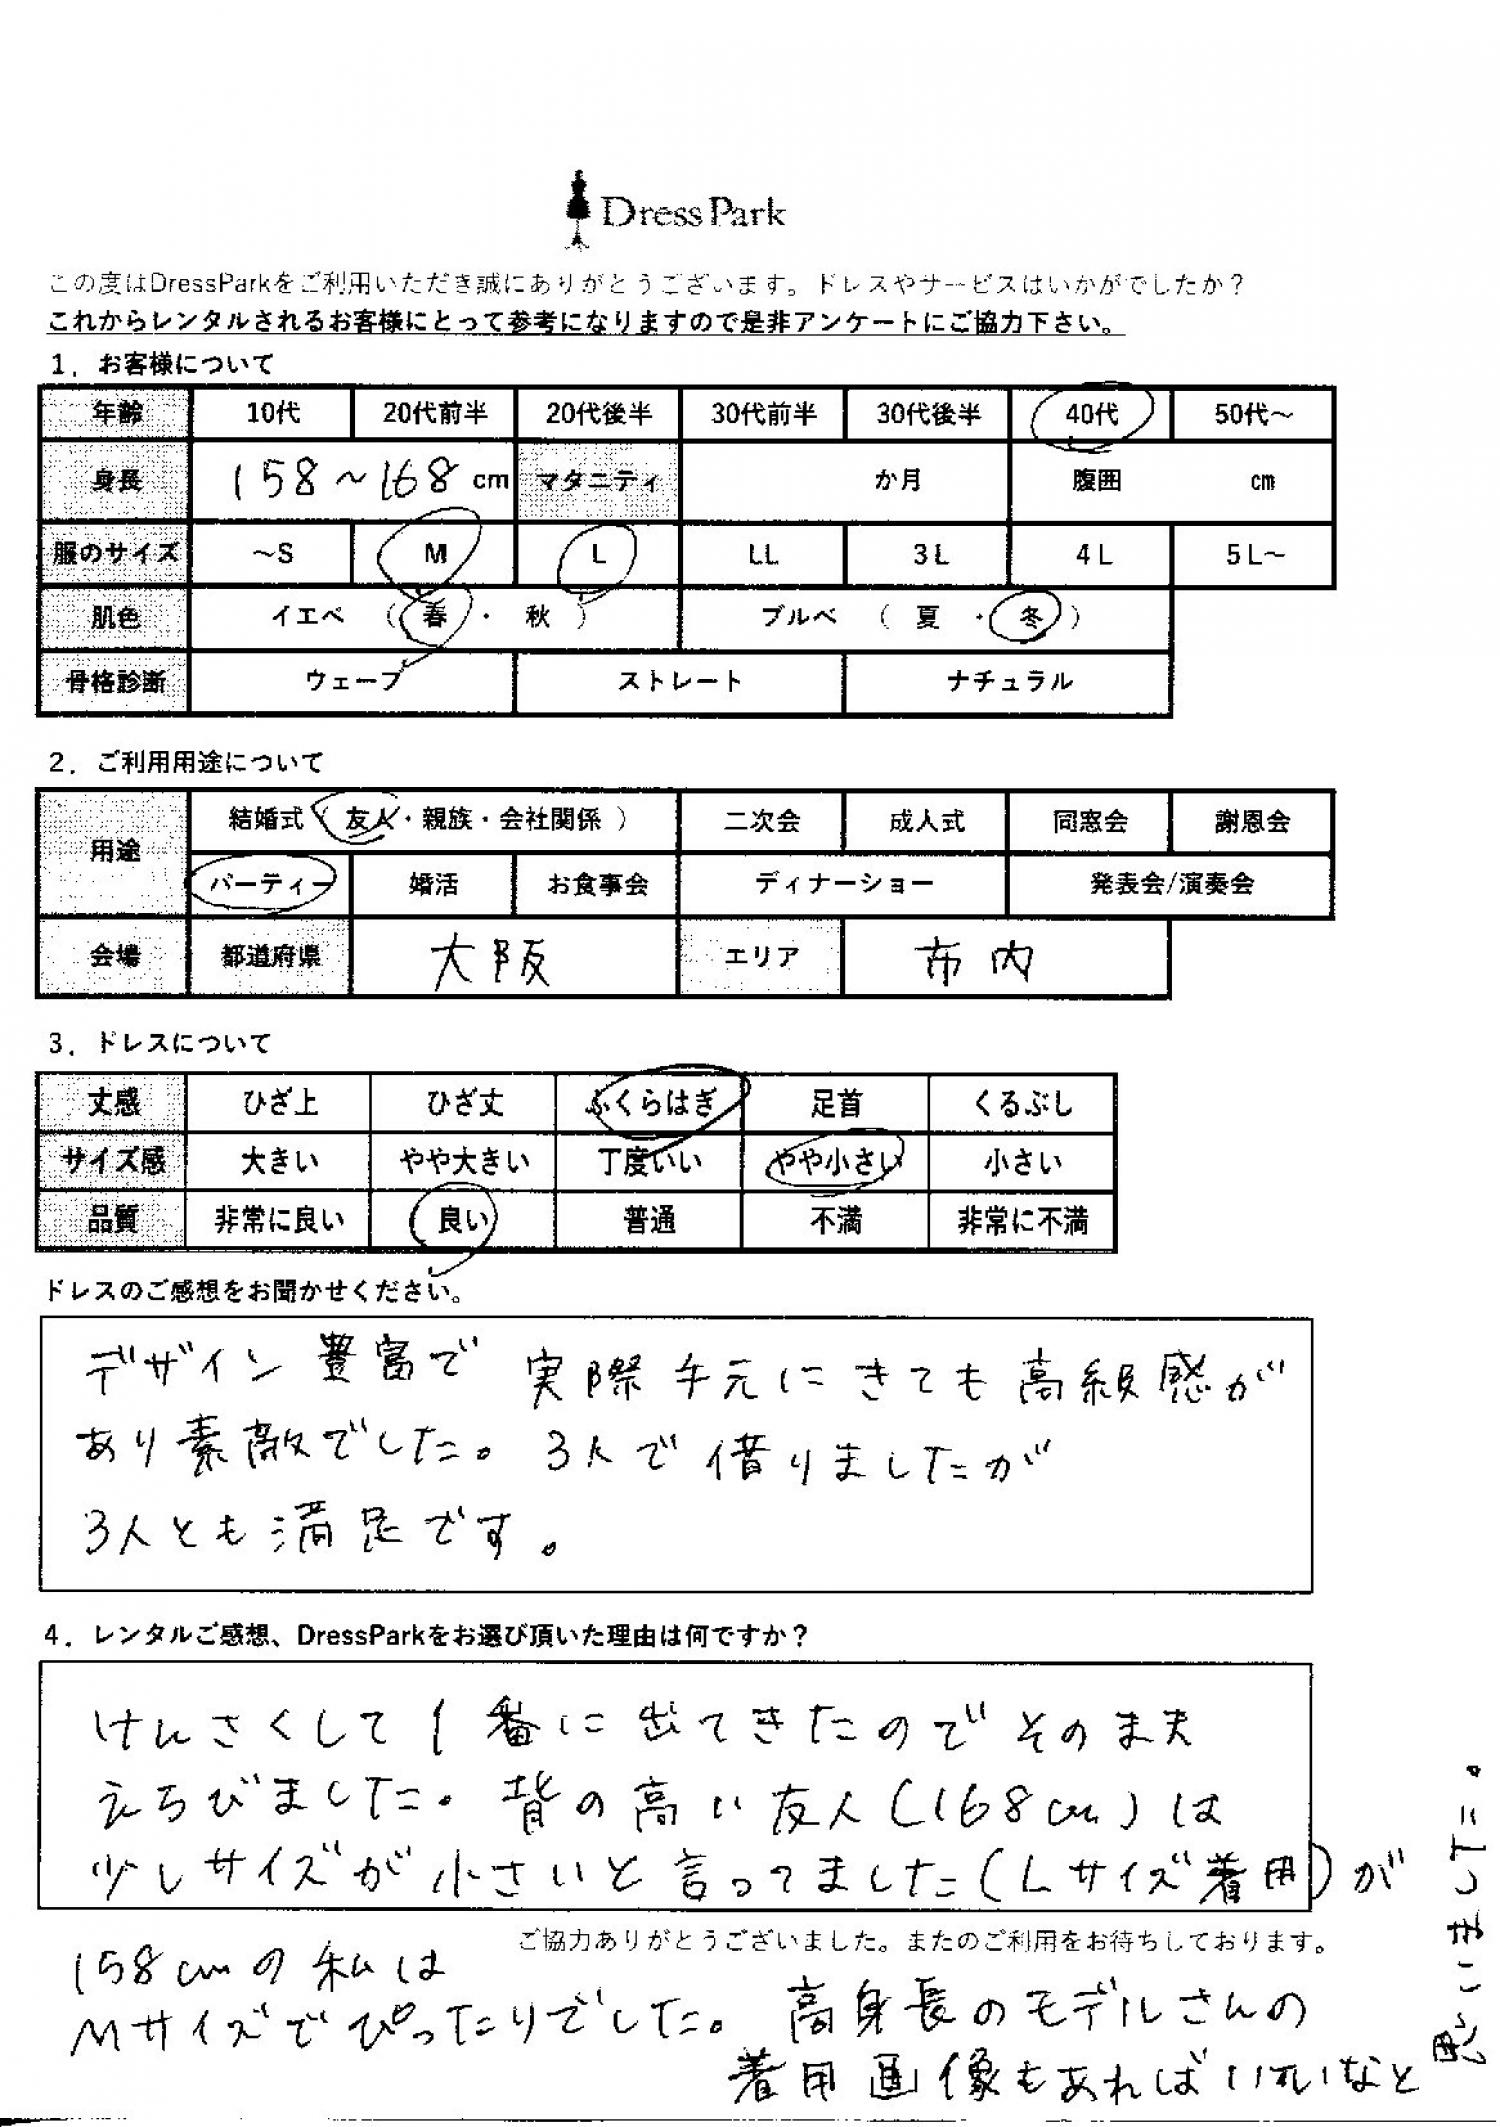 DressPark
この度はDressParkをご利用いただき誠にありがとうございます。ドレスやサービスはいかがでしたか？
これからレンタルされるお客様にとって参考になりますので是非アンケートにご協力下さい。
1．お客様について
年齢 10代 20代前半 20代後半 30代前半 30代後半 40代 50代～
身長 158～168 cm マタニティ か月 腹囲 cm
服のサイズ ～S M L LL 3L 4L 5L～
肌色 イエベ （ 春 ・ 秋 ） ブルベ （ 夏 ・ 冬 ）
骨格診断 ウェーブ ストレート ナチュラル
2．ご利用用途について
用途 結婚式（ 友人・親族・会社関係 ） 二次会 成人式 同窓会 謝恩会
パーティー 婚活 お食事会 ディナーショー 発表会/演奏会
会場 都道府県 大阪 エリア 市内
3．ドレスについて
丈感 ひざ上 ひざ丈 ふくらはぎ 足首 くるぶし
サイズ感 大きい やや大きい 丁度いい やや小さい 小さい
品質 非常に良い 良い 普通 不満 非常に不満
ドレスのご感想をお聞かせください。
デザイン豊富で 実際手元にきても高級感が
あり素敵でした。3人で借りましたが
3人とも満足です。
4．レンタルご感想、DressParkをお選び頂いた理由は何ですか？
けんさくして1番に出てきたのでそのまま
えらびました。背の高い友人(168cm)は
少しサイズが小さいと言ってました(Lサイズ着用)が
ご協力ありがとうございました。またのご利用をお待ちしております。
158cmの私は
Mサイズでぴったりでした。高身長のモデルさんの
着用画像もあればいいなと
思いました。